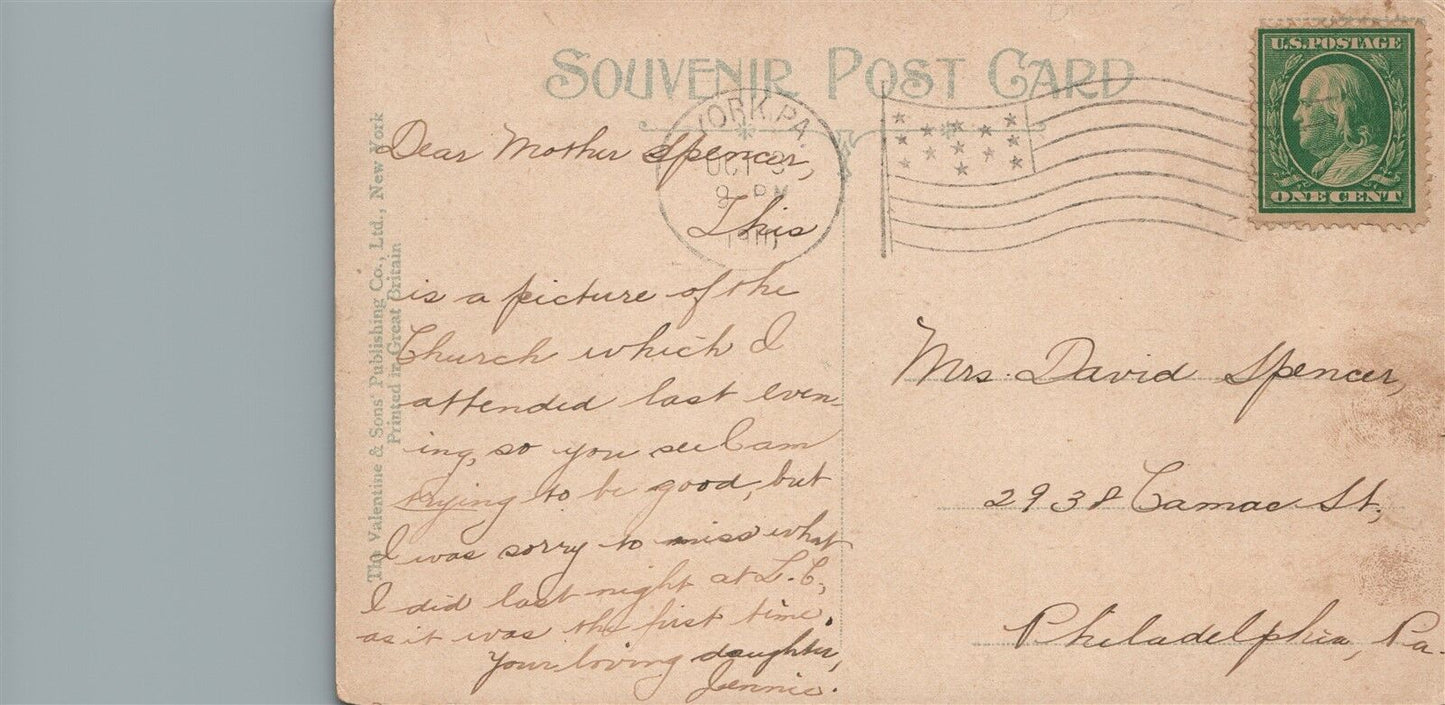 SOUVENIR POST CARD
U.S. POSTAGE
ONE CENT
YORK, PA.
OCT 3
9 PM
1910
The Valentine & Sons' Publishing Co., Ltd., New York
Printed in Great Britain
Dear Mother Spencer,
This
is a picture of the
Church which I
attended last even-
ing, so you see I am
trying to be good, but
I was sorry to miss what
I did last night at L. C,
as it was the first time.
Your loving daughter,
Jennie.
Mrs. David Spencer,
2938 Camac St,
Philadelphia, Pa-